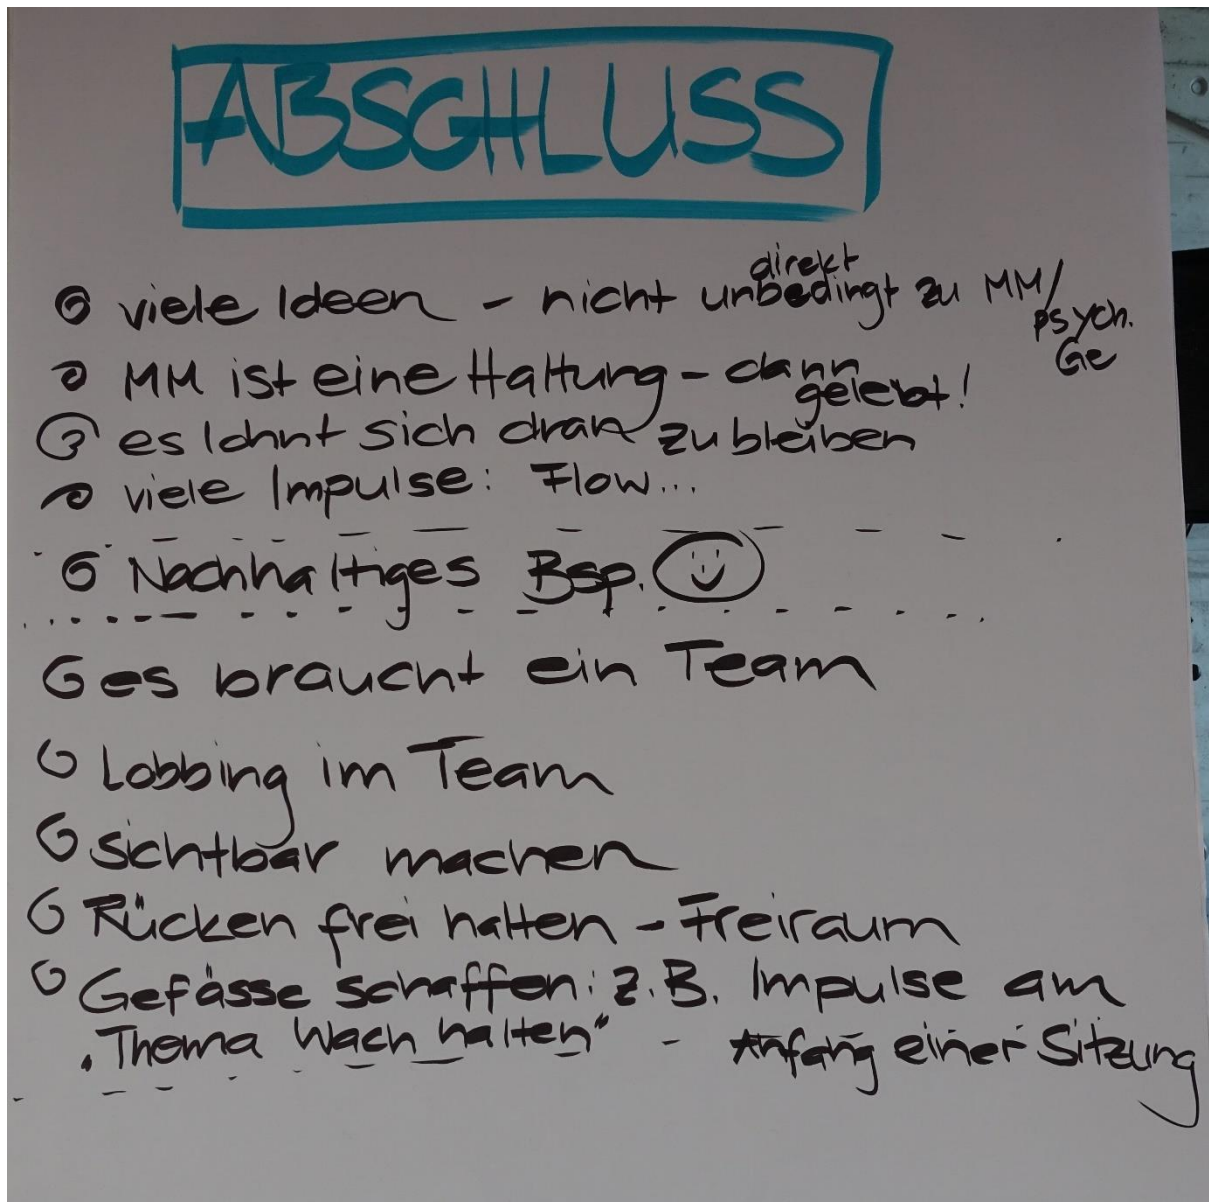 ABSCHLUSS
viele Ideen - nicht unbedingt direkt zu MM/
psych.
Ge
MM ist eine Haltung - dann
gelebt!
es lohnt sich dran zu bleiben
viele Impulse: Flow...
Nachhaltiges Bsp.
es braucht ein Team
Lobbing im Team
sichtbar machen
Rücken frei halten - Freiraum
Gefässe schaffen: z.B. Impulse am
"Thema Wach halten" - Anfang einer Sitzung